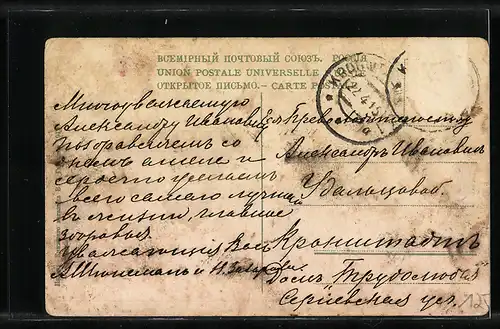 ВСЕМІРНЫЙ ПОЧТОВЫЙ СОЮЗЪ. РОССІЯ
UNION POSTALE UNIVERSELLE
ОТКРЫТОЕ ПИСЬМО.— CARTE POSTALE
Многоуважаемую
Александру Ивановну
Поздравляемъ со
днемъ ангела и
сердечно желаемъ
всего самаго лучшаго
въ жизни, главное
здоровья.
Уважающіе Васъ
Превосходительству
Александръ Ивановнѣ
Вальцовой.
Кронштадтъ
Домъ Трудолюбія
Сергіевская ул.
125